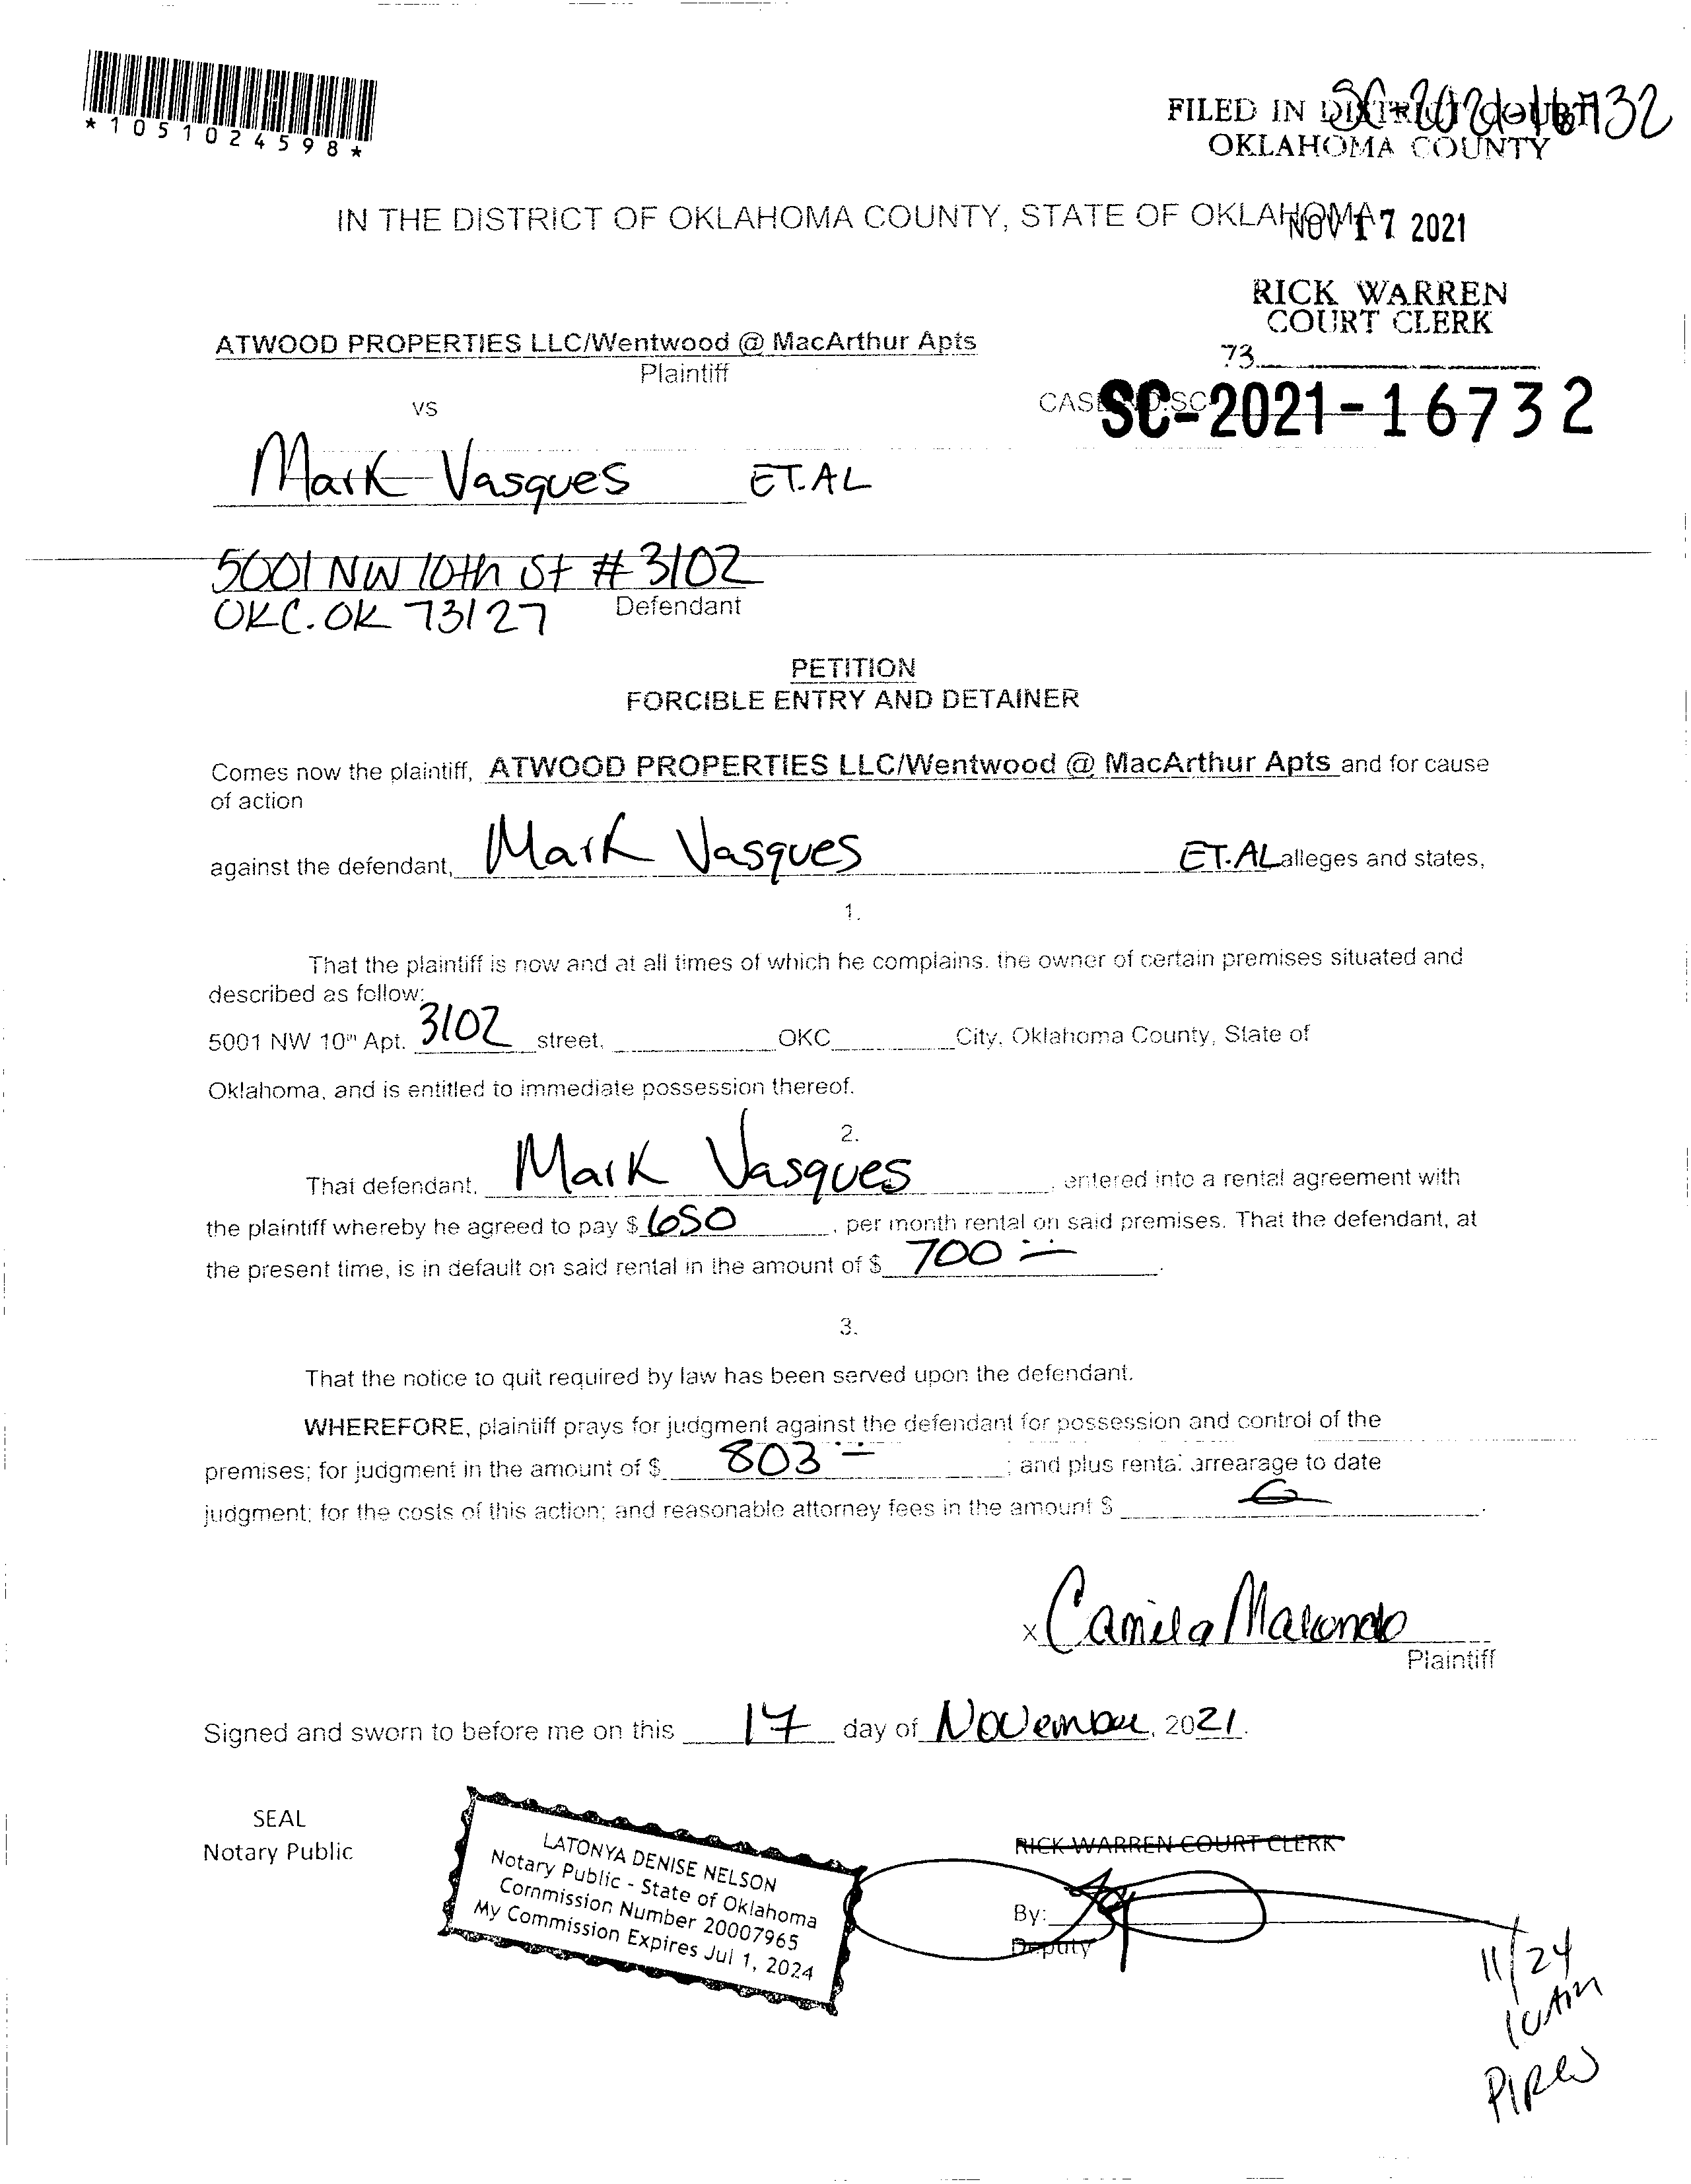 *1051024598*
SC-2021-16732
FILED IN DISTRICT COURT
OKLAHOMA COUNTY
IN THE DISTRICT OF OKLAHOMA COUNTY, STATE OF OKLAHOMA
NOV 17 2021
RICK WARREN
COURT CLERK
73
ATWOOD PROPERTIES LLC/Wentwood @ MacArthur Apts
Plaintiff
vs
CASE NO.SC-
SC-2021-16732
Mark Vasques ET.AL
5001 NW 10th St #3102
OKC. OK 73127
Defendant
PETITION
FORCIBLE ENTRY AND DETAINER
Comes now the plaintiff, ATWOOD PROPERTIES LLC/Wentwood @ MacArthur Apts and for cause
of action
against the defendant, Mark Vasques ET.AL alleges and states,
1.
That the plaintiff is now and at all times of which he complains. the owner of certain premises situated and
described as follow:
5001 NW 10th Apt. 3102 street, OKC City, Oklahoma County, State of
Oklahoma, and is entitled to immediate possession thereof.
2.
That defendant, Mark Vasques, entered into a rental agreement with
the plaintiff whereby he agreed to pay $ 650, per month rental on said premises. That the defendant, at
the present time, is in default on said rental in the amount of $ 700.
3.
That the notice to quit required by law has been served upon the defendant.
WHEREFORE, plaintiff prays for judgment against the defendant for possession and control of the
premises; for judgment in the amount of $ 803; and plus rental arrearage to date
judgment; for the costs of this action; and reasonable attorney fees in the amount $
x Camila
Plaintiff
Signed and sworn to before me on this 17 day of November, 2021.
SEAL
Notary Public
LATONYA DENISE NELSON
Notary Public - State of Oklahoma
Commission Number 20007965
My Commission Expires Jul 1, 2024
RICK WARREN COURT CLERK
By:
Deputy
11/24
10Am